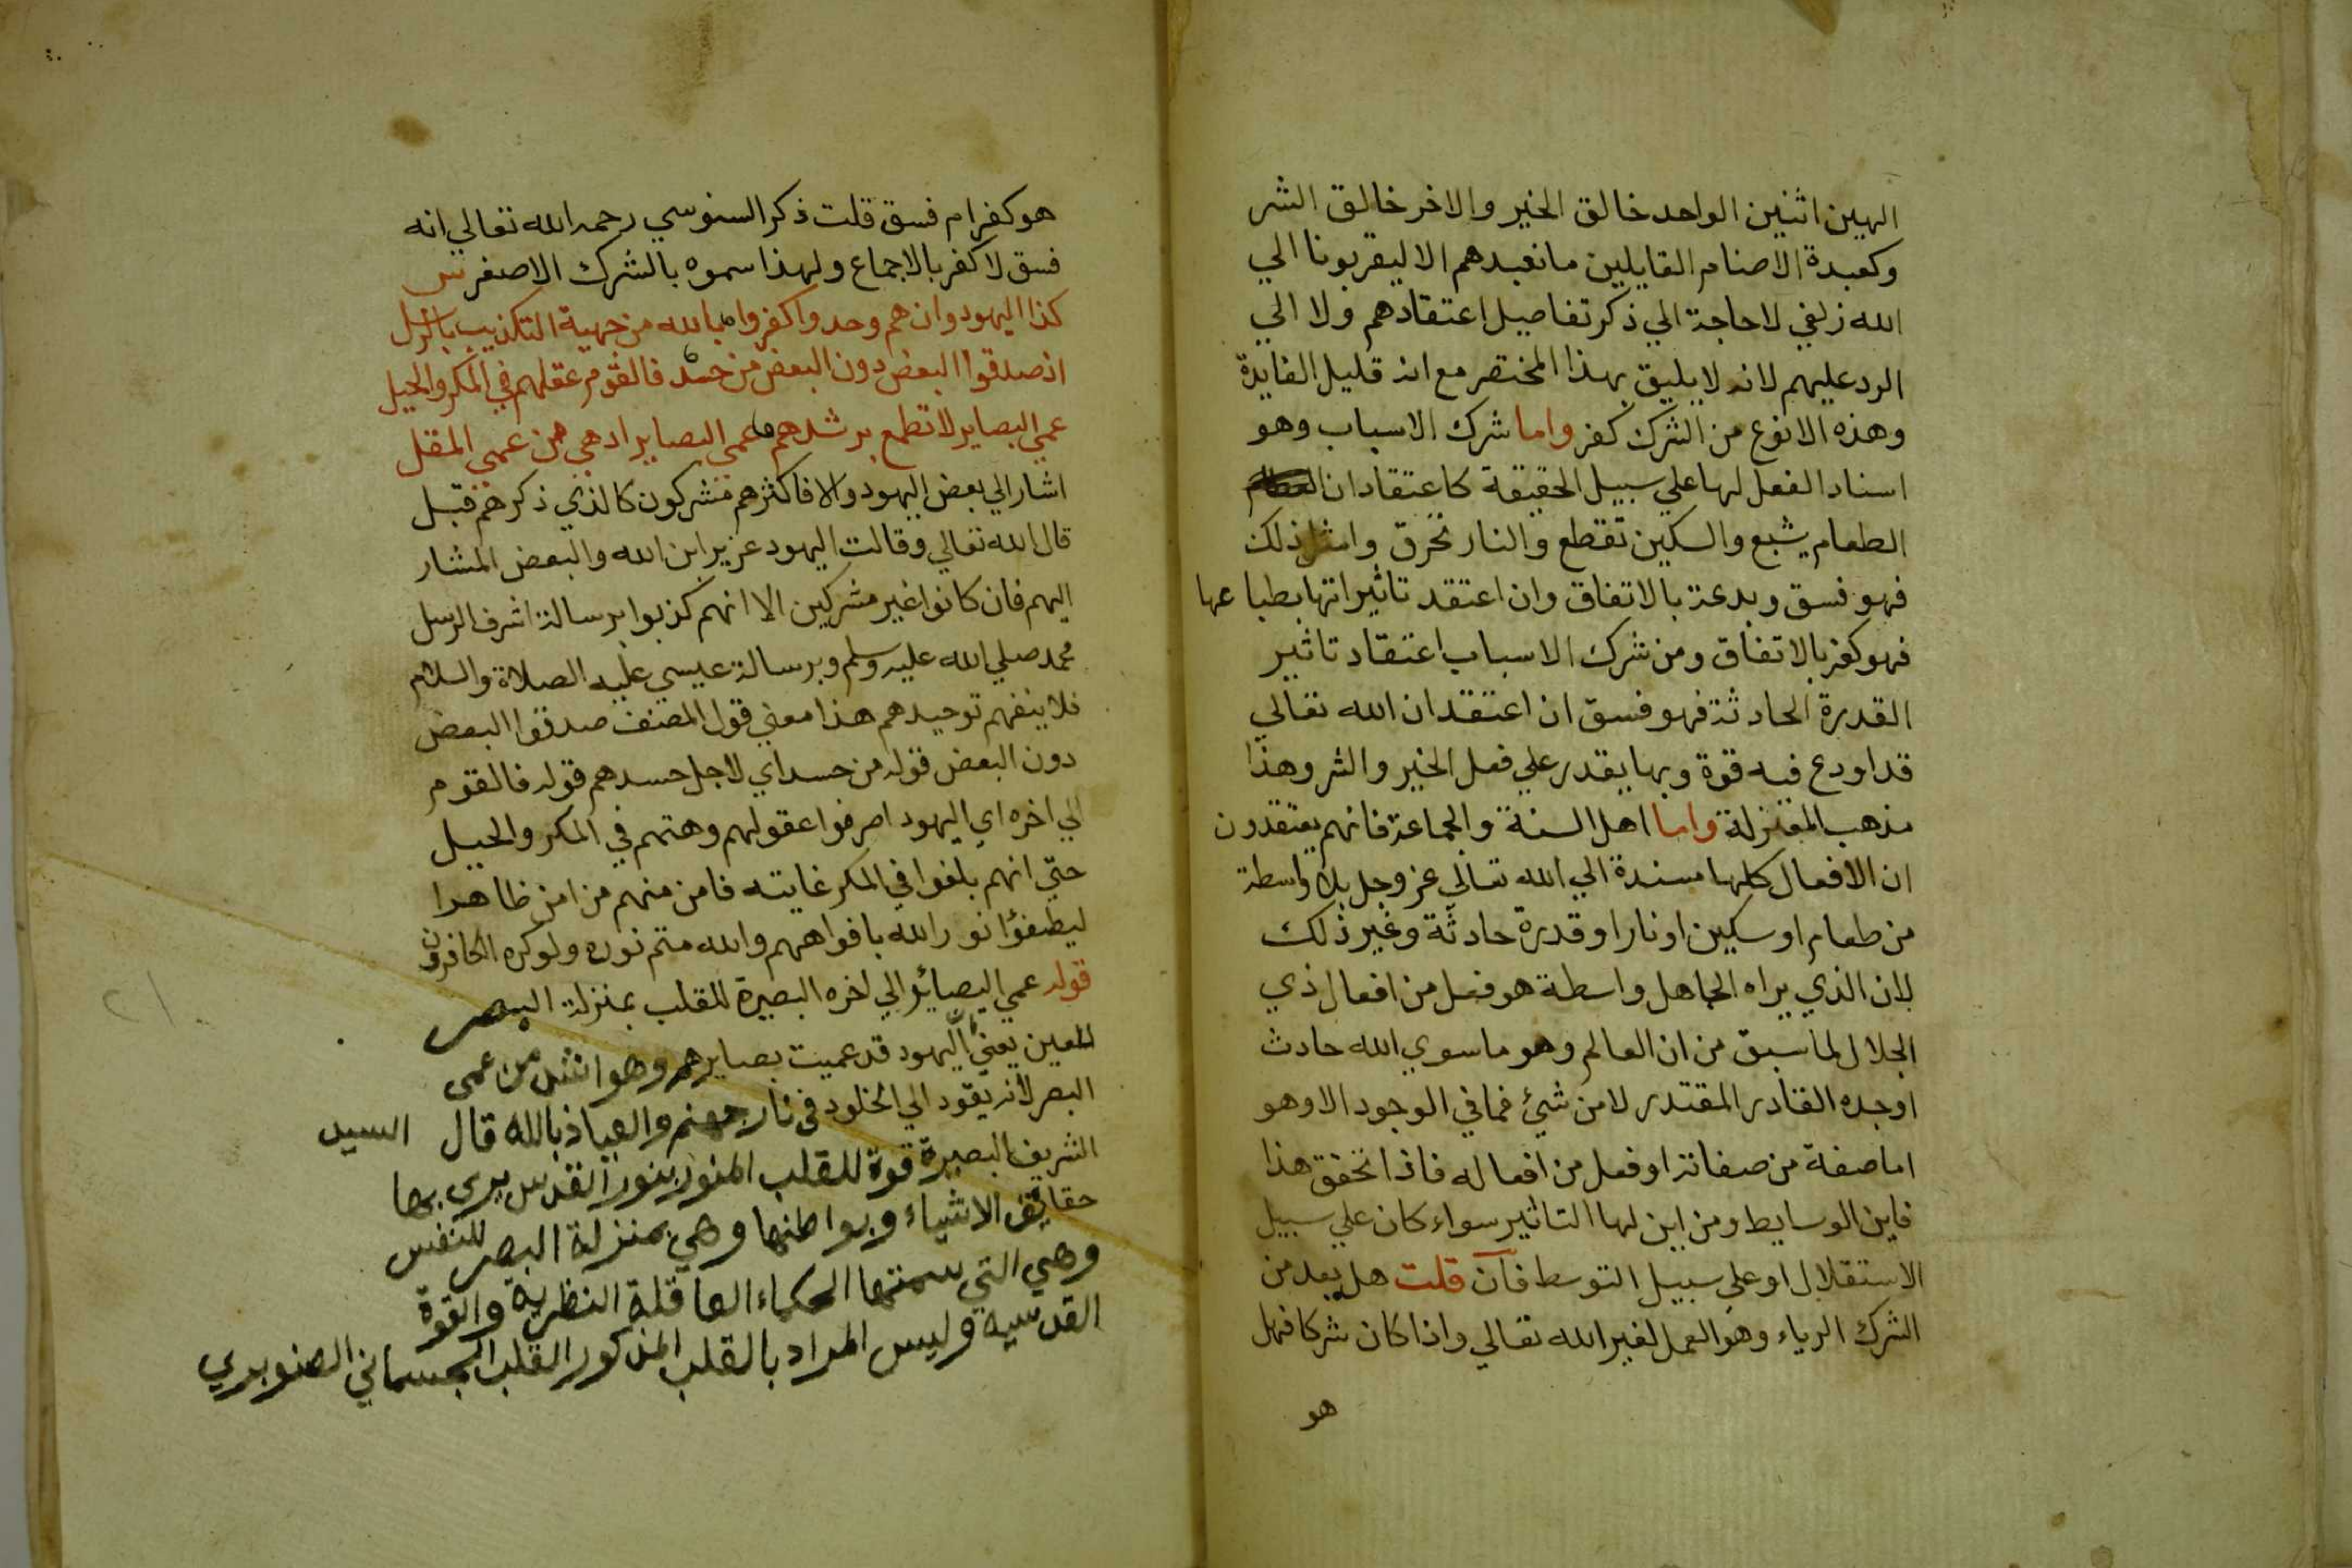 الهين اثنين الواحد خالق الخير والاخر خالق الشر
وكعبدة الاصنام القايلين ما نعبدهم الا ليقربونا الي
الله زلفي لا حاجة الي ذكر تفاصيل اعتقادهم ولا الي
الرد عليهم لانه لا يليق بهذا المختصر مع انه قليل الفايدة
وهذه الانوع من الشرك كفر واما شرك الاسباب وهو
اسناد الفعل لها علي سبيل الحقيقة كاعتقاد ان
الطعام يشبع والسكين تقطع والنار تحرق وامثل ذلك
فهو فسق وبدعة بالاتفاق وان اعتقد تاثيراتها بطباعها
فهو كفر بالاتفاق ومن شرك الاسباب اعتقاد تاثير
القدرة الحادثة فهو فسق ان اعتقد ان الله تعالي
قد اودع فيه قوة وبها يقدر علي فعل الخير والشر وهذا
مذهب المعتزلة واما اهل السنة والجماعة فانهم يعتقدون
ان الافعال كلها مسندة الي الله تعالي عز وجل بلا واسطة
من طعام او سكين او نار او قدرة حادثة وغير ذلك
لان الذي يراه الجاهل واسطة هو فعل من افعال ذي
الجلال لما سبق من ان العالم وهو ما سوي الله حادث
اوجده القادر المقتدر لا من شيئ فما في الوجود الا وهو
اما صفة من صفاته او فعل من افعاله فاذا تحقق هذا
فاين الوسايط ومن اين لها التاثير سواء كان علي سبيل
الاستقلال او علي سبيل التوسط فان قلت هل يعد من
الشرك الرياء وهو العمل لغير الله تعالي واذا كان شركا فهل
هو
هو كفر ام فسق قلت ذكر السنوسي رحمه الله تعالي انه
فسق لا كفر بالاجماع ولهذا سموه بالشرك الاصغر ص
كذا اليهود وان هم وحدوا كفروا بالله من جهة التكذيب بالرسل
اذ صدقوا البعض دون البعض من حسد فالقوم عقلهم في المكر والحيل
عمي البصاير لا تطمع برشدهم عمي البصاير ادهي من عمي المقل
اشار الي بعض اليهود والا فاكثرهم مشركون كالذي ذكرهم قبل
قال الله تعالي وقالت اليهود عزير ابن الله والبعض المشار
اليهم فان كانوا غير مشركين الا انهم كذبوا برسالة اشرف الرسل
محمد صلي الله عليه وسلم وبرسالة عيسي عليه الصلاة والسلام
فلا ينفهم توحيدهم هذا معني قول المصنف صدقوا البعض
دون البعض قوله من حسد اي لاجل حسدهم قوله فالقوم
الي اخره اي اليهود اصرفوا عقولهم وهتهم في المكر والحيل
حتي انهم بلغوا في المكر غايته فامن منهم من امن ظاهرا
ليطفؤا نور الله بافواههم والله متم نوره ولو كره الكافرون
قوله عمي البصائر الي اخره البصيرة للقلب بمنزلة البصر
للعين يعني اليهود قد عميت بصايرهم وهو اشد من عمى
البصر لانه يقود الي الخلود في نار جهنم والعياذ بالله قال السيد
الشريف البصيرة قوة للقلب المنور بنور القدس يرى بها
حقايق الاشياء وبواطنها وهي بمنزلة البصر للنفس
وهي التي سمتها الحكماء العاقلة النظرية والقوة
القدسية وليس المراد بالقلب المذكور القلب الجسماني الصنوبري
٢١